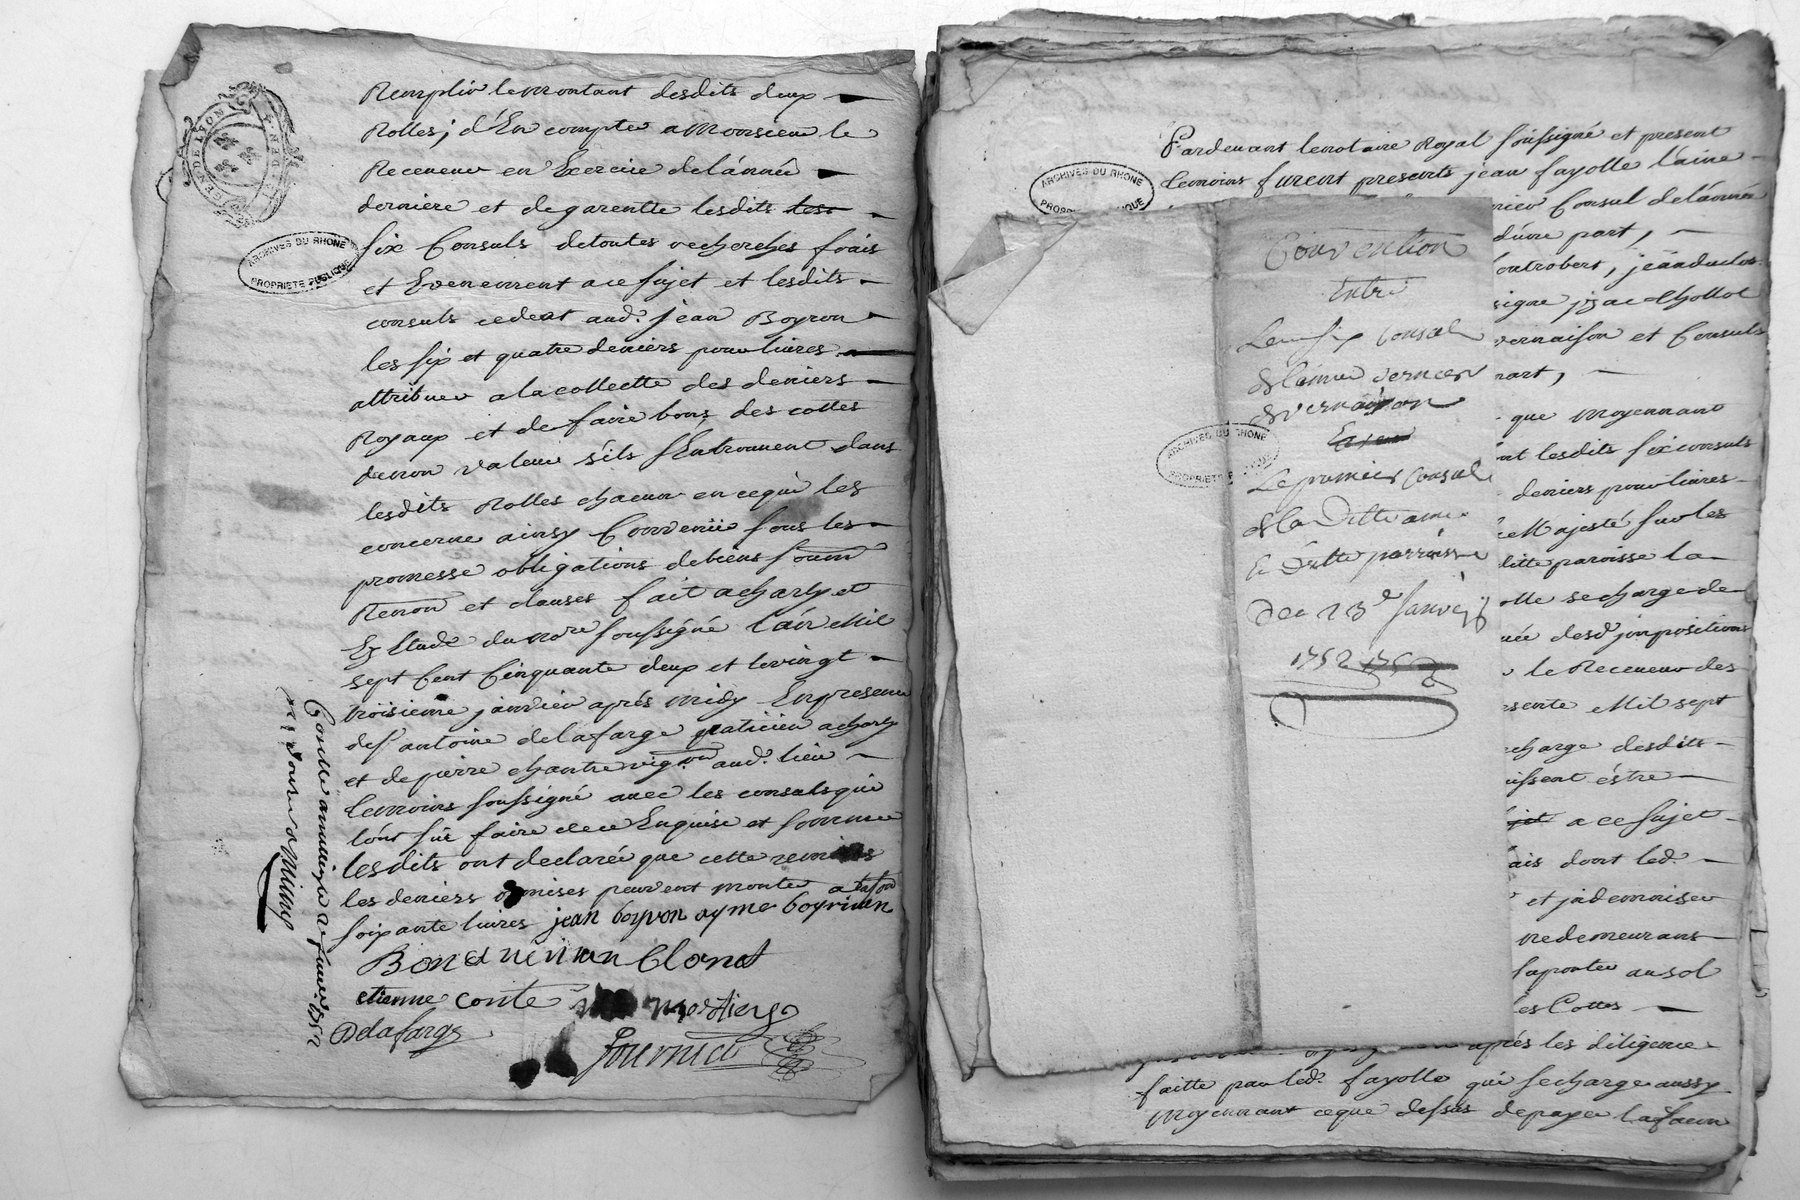 GEN. DE LYON
ARCHIVES DU RHONE
PROPRIETE PUBLIQUE
Remplir le montant desdits deux
Rolles, d'En compter a Monsieur le
Receveur en Exercice de l'année
derniere et de garentte lesdits les
six Consuls de toutes recherches frais
et Evenement a ce sujet et lesdits
consuls cedent aud. jean Boyron
les six et quatre deniers pour livres
attribuer a la collecte des deniers
Royaux et de faire bons des cottes
de non valeur s'ils s'en trouvent dans
lesdits Rolles chacun en ce qui les
concerne ainsy Convenu sous les
promesse obligations de biens soum
Renon et clauses fait a charly et
Etude du no.re soussigné l'an Mil
sept Cent Cinquante deux et le vingt
troisieme janvier aprés midy En presence
de s.r antoine delafarge praticien a charly
et de pierre chantre vig.on aud. lieu
temoins soussigné avec les consuls qui
l'ont sû faire de ce Enquise et somme
lesdits ont declarée que cette remises
les deniers remises peuvent monter a
soixante livres jean boyron ayme boyriven
Bond clonet
etienne conte mestiey
Delafarge
fournie
Controllé a millery le fevrier 1752
douze s. Micny
Pardevant le notaire Royal soussigné et present
temoins furent presents jean fayolle l'aine
mier Consul de l'année
d'une part,
jean duclos
signe izac chollot
vernaison et Consuls
part,
que moyennant
nt lesdits six consuls
deniers pour livres
Majesté sur les
ditte paroisse la
olle se charge de
desd. impositions
le Receveur des
sente Mil sept
charge desdits
uissent éstre
a ce sujet
ais dont led.
et jndemniser
ne demeurans
la porter au sol
les Cottes
aprés les diligence
faitte par led. fayolle qui se charge aussy
moyennant ce que dessus de payer la facon
ARCHIVES DU RHONE
Convention
Entre
Le six consul
de l'année derniere
de vernaison
Le premier Consul
de la Ditte année
Ditte parroisse
Du 23e Janvier
1752
ARCHIVES DU RHONE